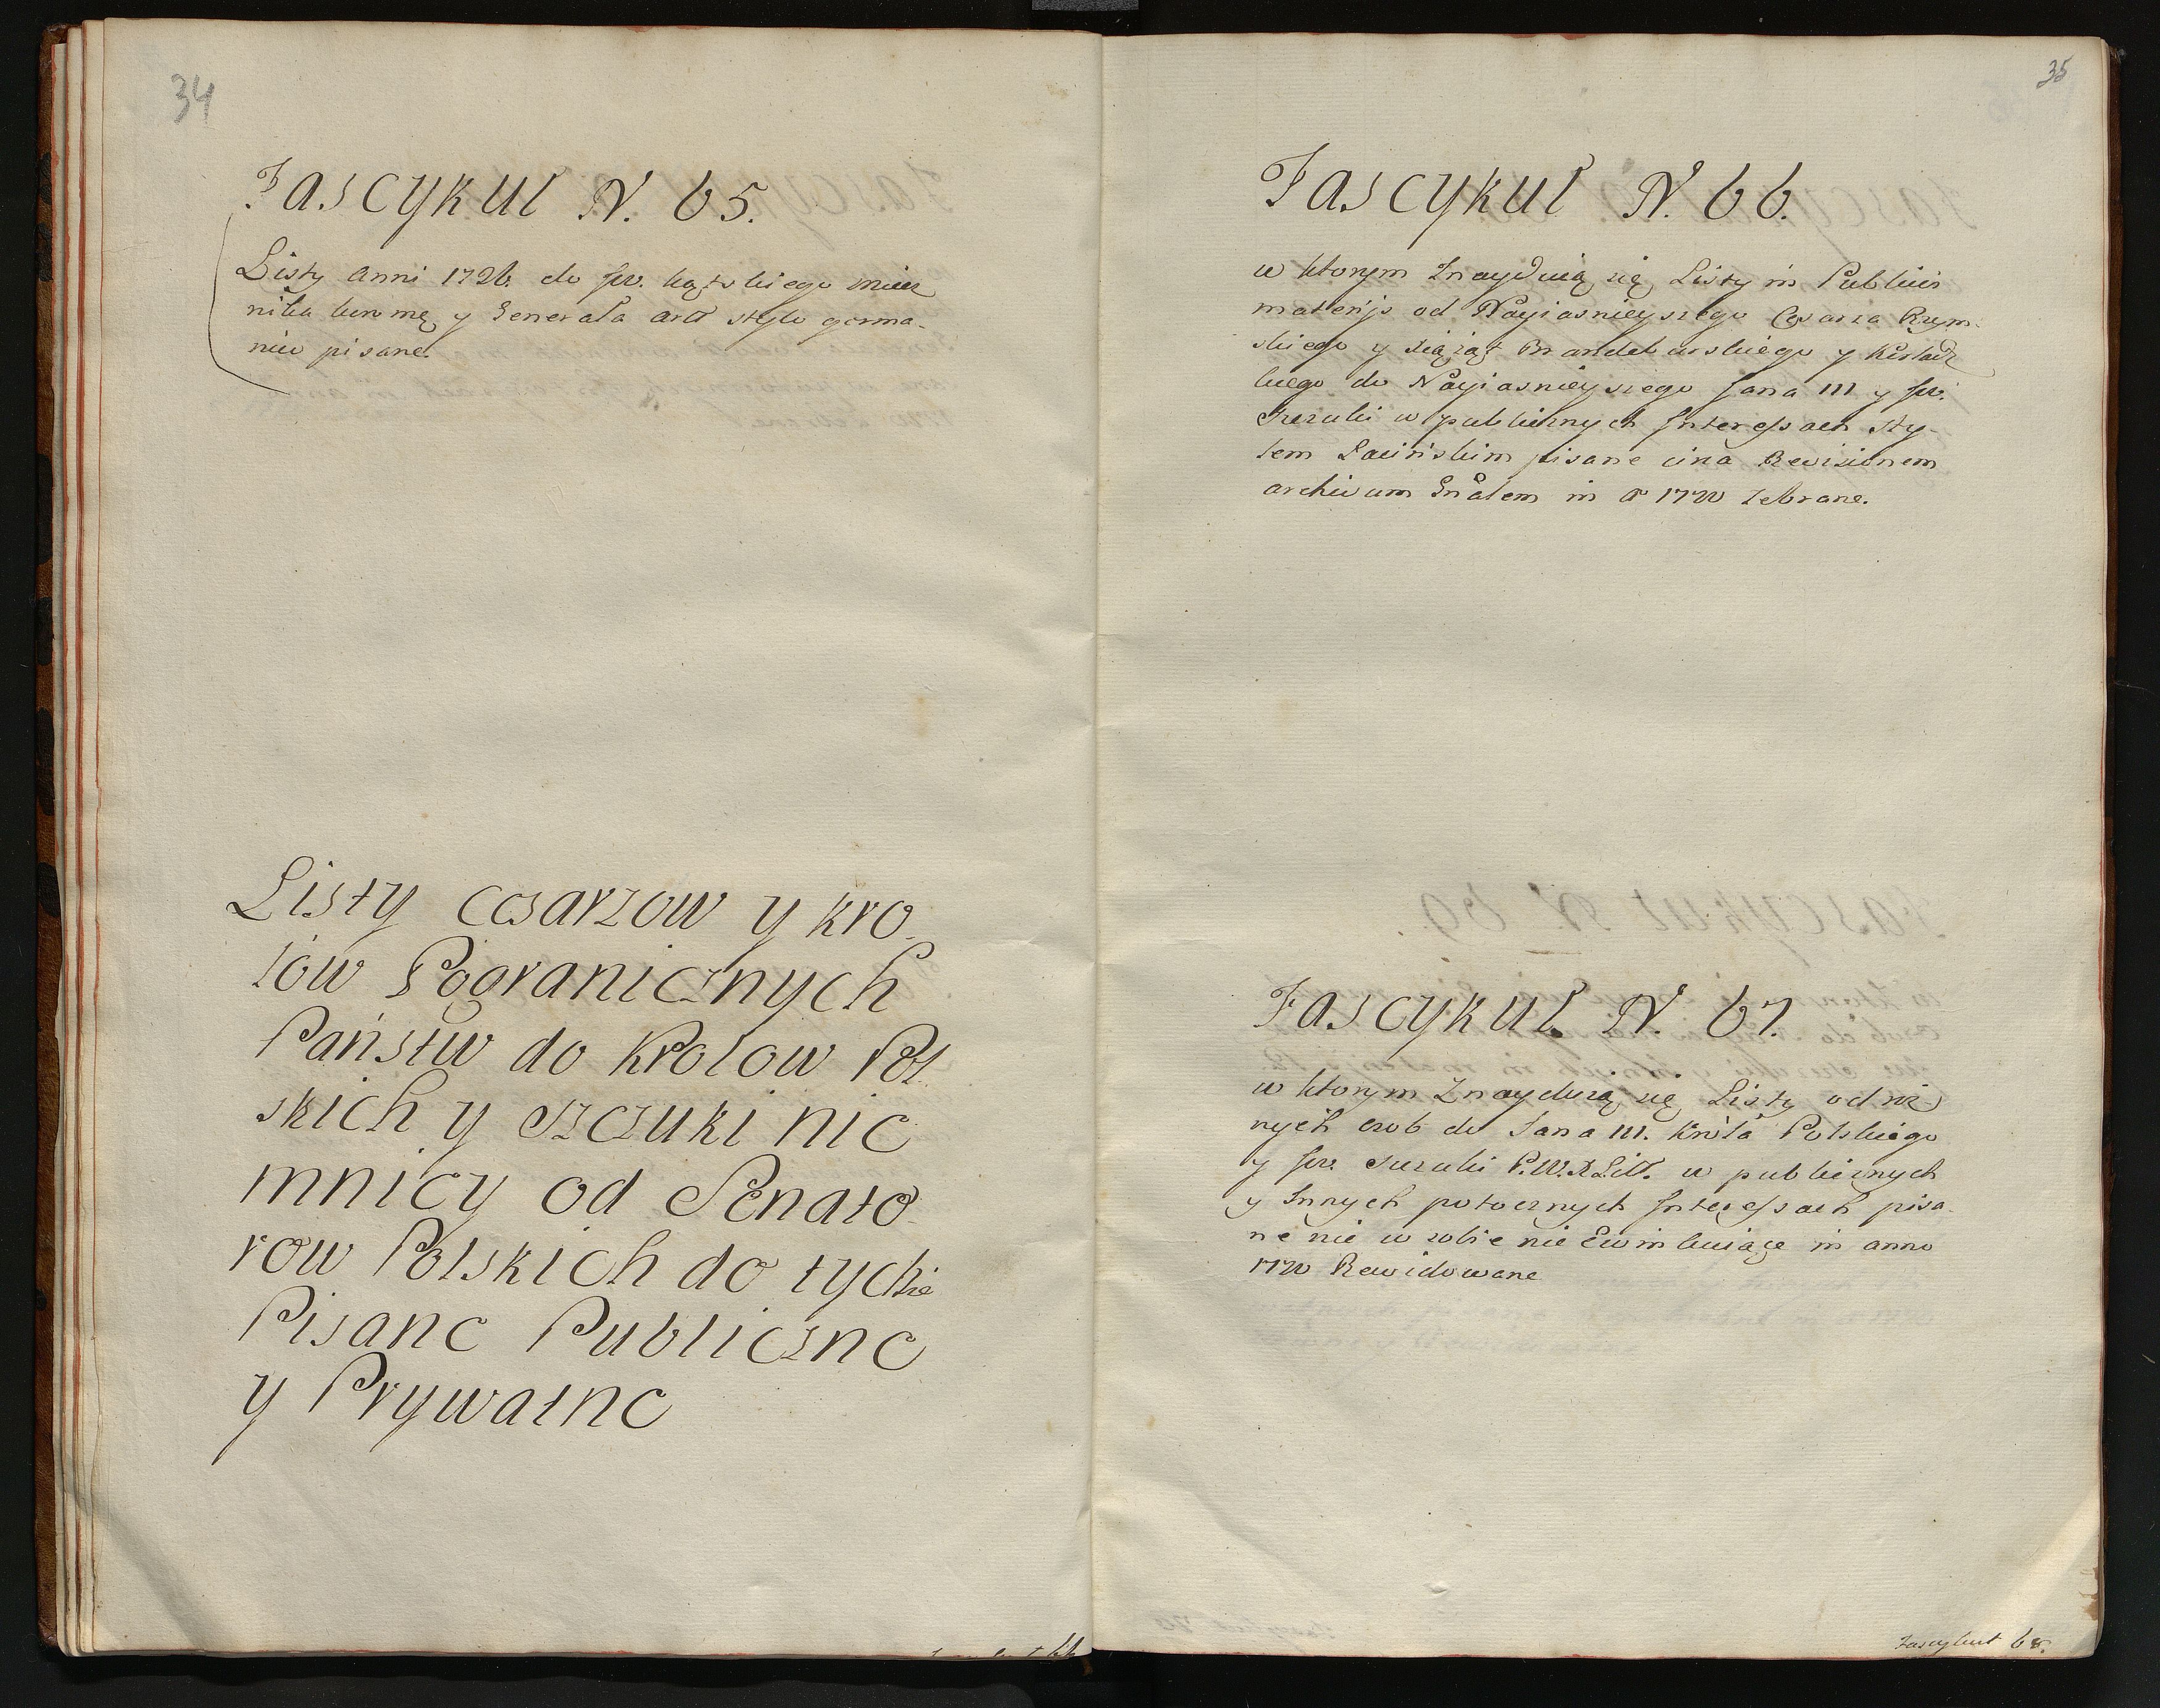 34
Fascykuł N. 65.
Listy Anni 1726. do Jw. kątskiego miecz
nika koronnę y Generała Artt stylo germa-
nico pisane.
Listy Cesarzow y Kro
low Pogranicznych
Państw do Krolow Pol
skich y Szczuki nie
mniey od Senato
row Polskich do tychże
Pisane Publiczne
y Prywatne
35
Fascykuł N. 66.
w ktorym Znayduią się Listy in Publicis
materijs od Nayiasnieyszego Cesarza Rzym-
skiego y Xiążąt Brandeburskiego y
do Nayiasnieyszego Jana III y Jw.
Szczuki w publicznych Interessach Sty-
lem Łacińskim pisane circa Revisionem
archivum Gnalem in Ao 1720 zebrane.
Fascykuł N. 67.
w ktorym Znayduią się Listy od roz
nych osob do Jana III. Króla Polskiego
y Jw. Szczuki P.W.X.Litt. w publicznych
y Innych potocznych Interessach pisa-
ne nic w sobie nie Ewinkuiące in anno
1720 Rewidowane
Fascykuł 68.